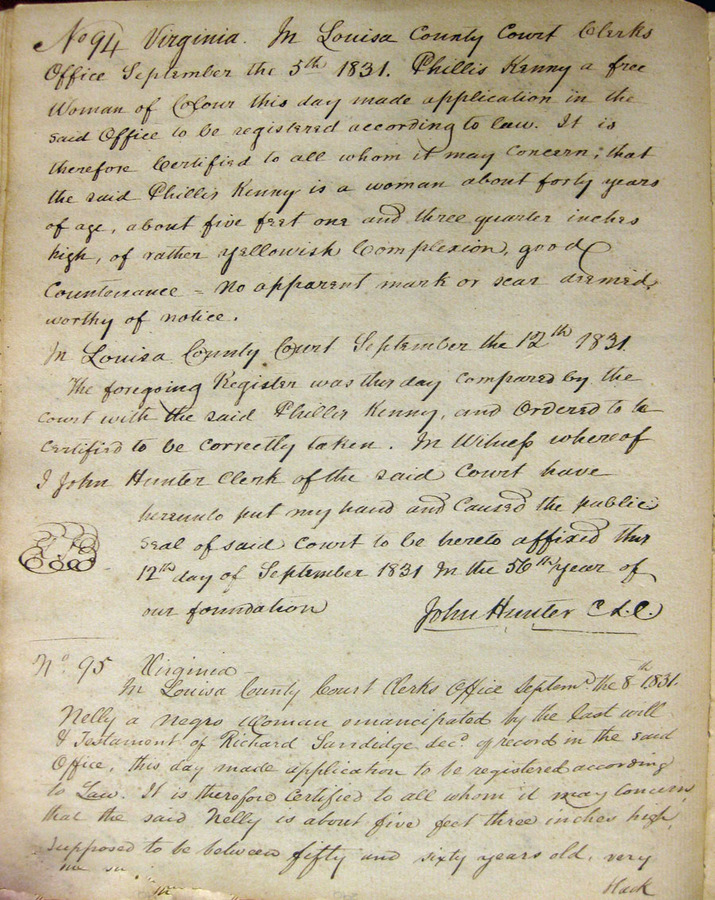 No 94 Virginia. In Louisa County Court Clerks
Office September the 5th 1831. Phillis Kenny a free
Woman of Colour this day made application in the
said Office to be registered according to law. It is
therefore Certified to all whom it may Concern; that
the said Phillis Kenny is a woman about forty years
of age, about five feet one and three quarter inches
high, of rather yellowish Complexion, good
Countenance = No apparent mark or scar deemed
worthy of notice.
In Louisa County Court September the 12th 1831
The foregoing Register was this day Compared by the
Court with the said Phillis Kenny, and Ordered to be
Certified to be Correctly taken. In Witness whereof
I John Hunter Clerk of the said Court have
hereunto put my hand and Caused the public
seal of said Court to be hereto affixed this
12th day of September 1831 In the 56th year of
our foundation
John Hunter C L C
No. 95 Virginia
In Louisa County Court Clerks Office Septemr. the 8th 1831.
Nelly a negro Woman emancipated by the last will
& Testament of Richard Sandidge decd. of record in the said
Office, this day made application to be registered according
to Law. It is therefore Certified to all whom it may Concern,
that the said Nelly is about five feet three inches high,
supposed to be between fifty and sixty years old, very
black